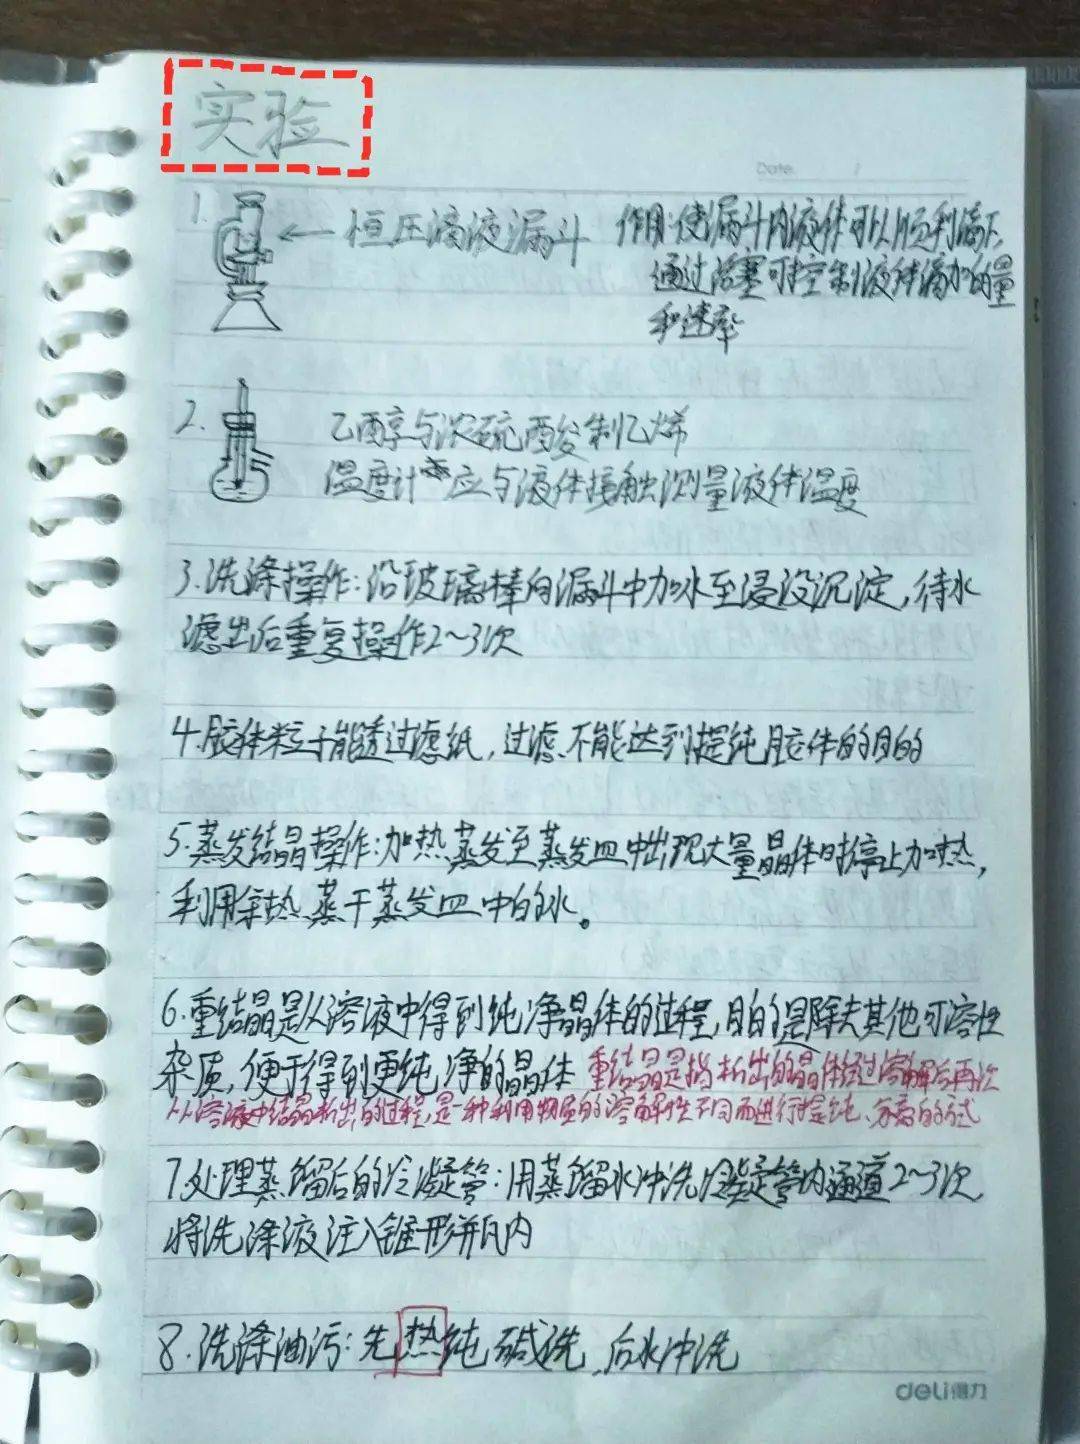 实验
Date. /
1. ← 恒压滴液漏斗 作用:使漏斗内液体可以顺利滴下,
通过活塞可控制液体滴加的量
和速率
2. 乙醇与浓硫酸制乙烯
温度计 应与液体接触测量液体温度
3.洗涤操作:沿玻璃棒向漏斗中加水至浸没沉淀,待水
滤出后重复操作2~3次
4.胶体粒子能透过滤纸,过滤不能达到提纯胶体的目的
5.蒸发结晶操作:加热蒸发至蒸发皿中出现大量晶体时停止加热,
利用余热蒸干蒸发皿中的水。
6.重结晶是从溶液中得到纯净晶体的过程,目的是除去其他可溶性
杂质,便于得到更纯净的晶体 重结晶是指析出的晶体经过溶解后再次
从溶液中结晶析出的过程,是一种利用物质的溶解性不同而进行提纯、分离的方式
7.处理蒸馏后的冷凝管:用蒸馏水冲洗冷凝管内通道2~3次,
将洗涤液注入锥形瓶内
8.洗涤油污:先热纯碱洗,后水冲洗
deli得力